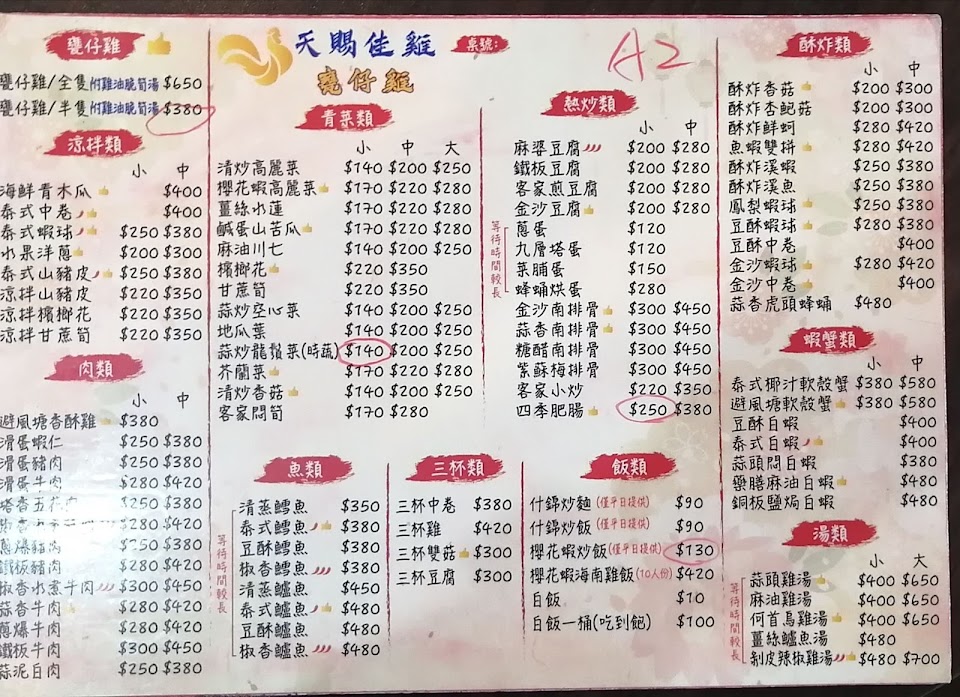 甕仔雞
甕仔雞/全隻 附雞油脆筍湯 $650
甕仔雞/半隻 附雞油脆筍湯 $380
涼拌類
小 中
海鮮青木瓜 $400
泰式中卷 $400
泰式蝦球 $250 $380
水果洋蔥 $200 $300
泰式山豬皮 $250 $380
涼拌山豬皮 $220 $350
涼拌檳榔花 $220 $350
涼拌甘蔗筍 $220 $350
肉類
小 中
避風塘香酥雞 $380
滑蛋蝦仁 $250 $380
滑蛋豬肉 $250 $380
滑蛋牛肉 $280 $420
塔香五花肉 $250 $380
$280 $420
蔥爆豬肉 $250 $380
鐵板豬肉 $280 $420
椒香水煮牛肉 $300 $450
蒜香牛肉 $280 $420
蔥爆牛肉 $280 $420
鐵板牛肉 $300 $450
蒜泥白肉 $250 $380
天賜佳雞
甕仔雞
桌號:
A2
青菜類
小 中 大
清炒高麗菜 $140 $200 $250
櫻花蝦高麗菜 $170 $220 $280
薑絲水蓮 $170 $220 $280
鹹蛋山苦瓜 $170 $220 $280
麻油川七 $140 $200 $250
檳榔花 $220 $350
甘蔗筍 $220 $350
蒜炒空心菜 $140 $200 $250
地瓜葉 $140 $200 $250
蒜炒龍鬚菜(時蔬) $140 $200 $250
芥蘭菜 $170 $220 $280
清炒香菇 $140 $200 $250
客家悶筍 $170 $280
熱炒類
小 中
麻婆豆腐 $200 $280
鐵板豆腐 $200 $280
客家煎豆腐 $200 $280
金沙豆腐 $200 $280
等待時間較長
蔥蛋 $120
九層塔蛋 $120
菜脯蛋 $150
蜂蛹烘蛋 $280
金沙南排骨 $300 $450
蒜香南排骨 $300 $450
糖醋南排骨 $300 $450
紫蘇梅排骨 $300 $450
客家小炒 $220 $350
四季肥腸 $250 $380
魚類
等待時間較長
清蒸鱈魚 $350
泰式鱈魚 $380
豆酥鱈魚 $380
椒香鱈魚 $380
清蒸鱸魚 $450
泰式鱸魚 $480
豆酥鱸魚 $480
椒香鱸魚 $480
三杯類
三杯中卷 $380
三杯雞 $420
三杯雙菇 $300
三杯豆腐 $300
飯類
什錦炒麵 (僅平日提供) $90
什錦炒飯 (僅平日提供) $90
櫻花蝦炒飯 (僅平日提供) $130
櫻花蝦海南雞飯 (10人份) $420
白飯 $10
白飯一桶(吃到飽) $100
酥炸類
小 中
酥炸香菇 $200 $300
酥炸杏鮑菇 $200 $300
酥炸鮮蚵 $280 $420
魚蝦雙拼 $280 $420
酥炸溪蝦 $250 $380
酥炸溪魚 $250 $380
鳳梨蝦球 $250 $380
豆酥蝦球 $280 $380
豆酥中卷 $400
金沙蝦球 $280 $420
金沙中卷 $400
蒜香虎頭蜂蛹 $480
蝦蟹類
小 中
泰式椰汁軟殼蟹 $380 $580
避風塘軟殼蟹 $380 $580
豆酥白蝦 $400
泰式白蝦 $400
蒜頭悶白蝦 $380
藥膳麻油白蝦 $480
銅板鹽焗白蝦 $480
湯類
小 大
等待時間較長
蒜頭雞湯 $400 $650
麻油雞湯 $400 $650
何首烏雞湯 $400 $650
薑絲鱸魚湯 $480
剝皮辣椒雞湯 $480 $700